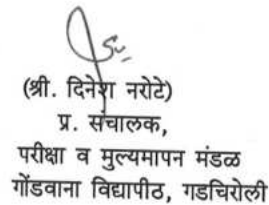 (श्री. दिनेश नरोटे)
प्र. संचालक,
परीक्षा व मुल्यमापन मंडळ
गोंडवाना विद्यापीठ, गडचिरोली